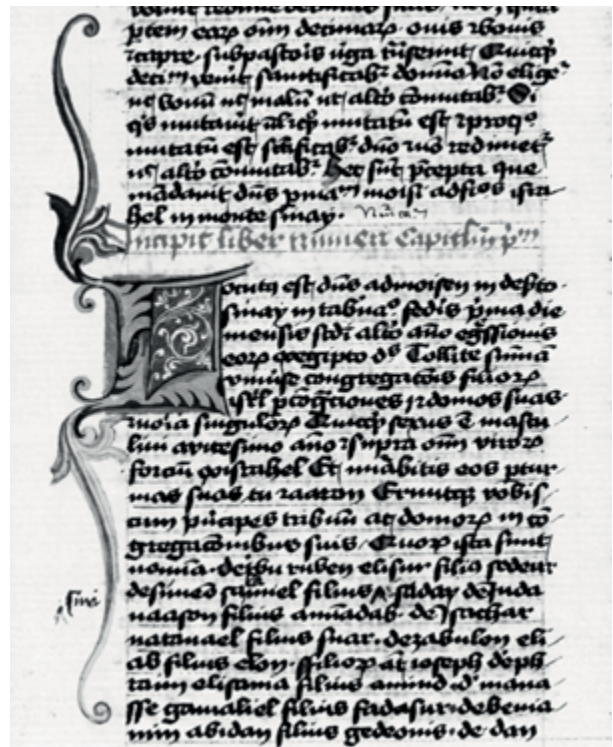 ptem eorꝝ om̅ decimarꝝ · ouis ⁊ bouis
⁊ capre · subpastoris u̇ga
deciᵐ veni̇t sanctificabr̃ domino Nō elige
nec bonū nec malū nec alto com̅utabr̃ Si
q̇s mutauit
mutatū est sc̅ificabr̃ dn̅o ⁊ nō redimetr̃
nec alto com̅utabr̃ Hec sūt p̅cepta que
mādauit dn̅s moisi ad filios isra
hel in monte sinay ·
Incipit liber numeri Capitlm̅ pᵐ
Locutꝰ est dn̅s ad moisen in deserto
sinay in tabnac̅lo federis p̅ma die
mensis sc̅di alto año eg̅ssionis
eorꝝ ex egipto dicens Tollite sum̅ā
vniuerse congregac̅ois filiorꝝ
isrl̅ p cogñciones ⁊ domos suas
⁊ noīa singulorꝝ Quicq̅ꝫ sexus ē mascu
lini a vicesimo año ⁊ supra om̅ virorꝝ
forciū ex israhel Et nūabitis eos p tur
mas suas tu ⁊ aaron Eruntqꝫ vobis
cum p̅ncipes tribuū ac domorꝝ in cō
gregac̅onibus suis · Quorꝝ ista sunt
nomīa · de ruben elisur filius sedeur
de simeō samuel filius saday de Juda
naason filius aminadab · de Isachar
natanael filius suar · de zabulon eli
ab filius elon · filiorꝝ aūt ioseph de eph
raim elisama filius amiud · d' mana
sse gamaliel filius fadasur · de benia
min abidan filius gedeonis · de dan